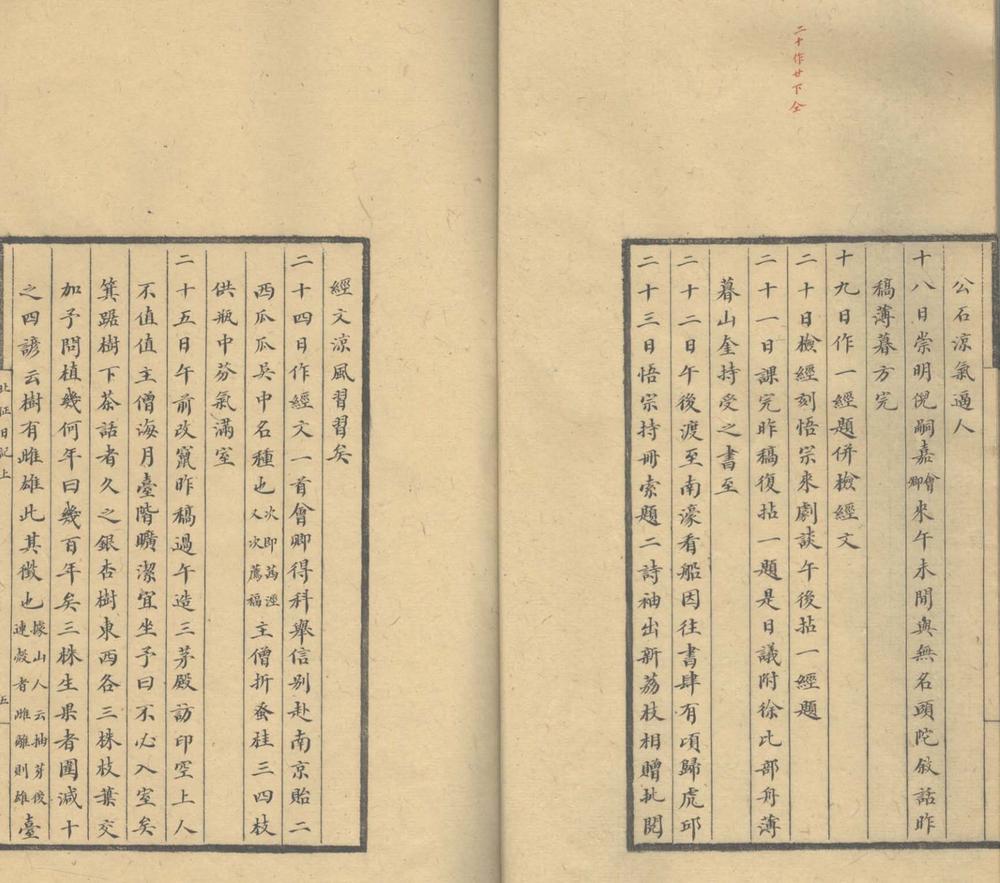 二十作廿下仝
公石涼氣逼人
十八日崇明倪嗣嘉會卿來午未間與無名頭陀敘話昨
稿薄暮方完
十九日作一經題併檢經文
二十日檢經刻悟宗來劇談午後拈一經題
二十一日課完昨稿復拈一題是日議附徐比部舟薄
暮山奎持受之書至
二十二日午後渡至南濠看船因往書肆有頃歸虎邱
二十三日悟宗持冊索題二詩袖出新荔枝相贈批閱
經文涼風習習矣
二十四日作經文一首會卿得科舉信別赴南京貽二
西瓜瓜吳中名種也次即蒿涇又次薦福主僧折蚤桂三四枝
供瓶中芬氣滿室
二十五日午前改竄昨稿過午造三茅殿訪印空上人
不值值主僧海月臺階曠潔宜坐予曰不必入室矣
箕踞樹下茶話者久之銀杏樹東西各三株枝葉交
加予問植幾何年曰幾百年矣三株生果者圍減十
之四諺云樹有雌雄此其徵也據山人云抽芽後連殼者雌離則雄臺
北征日記上
五